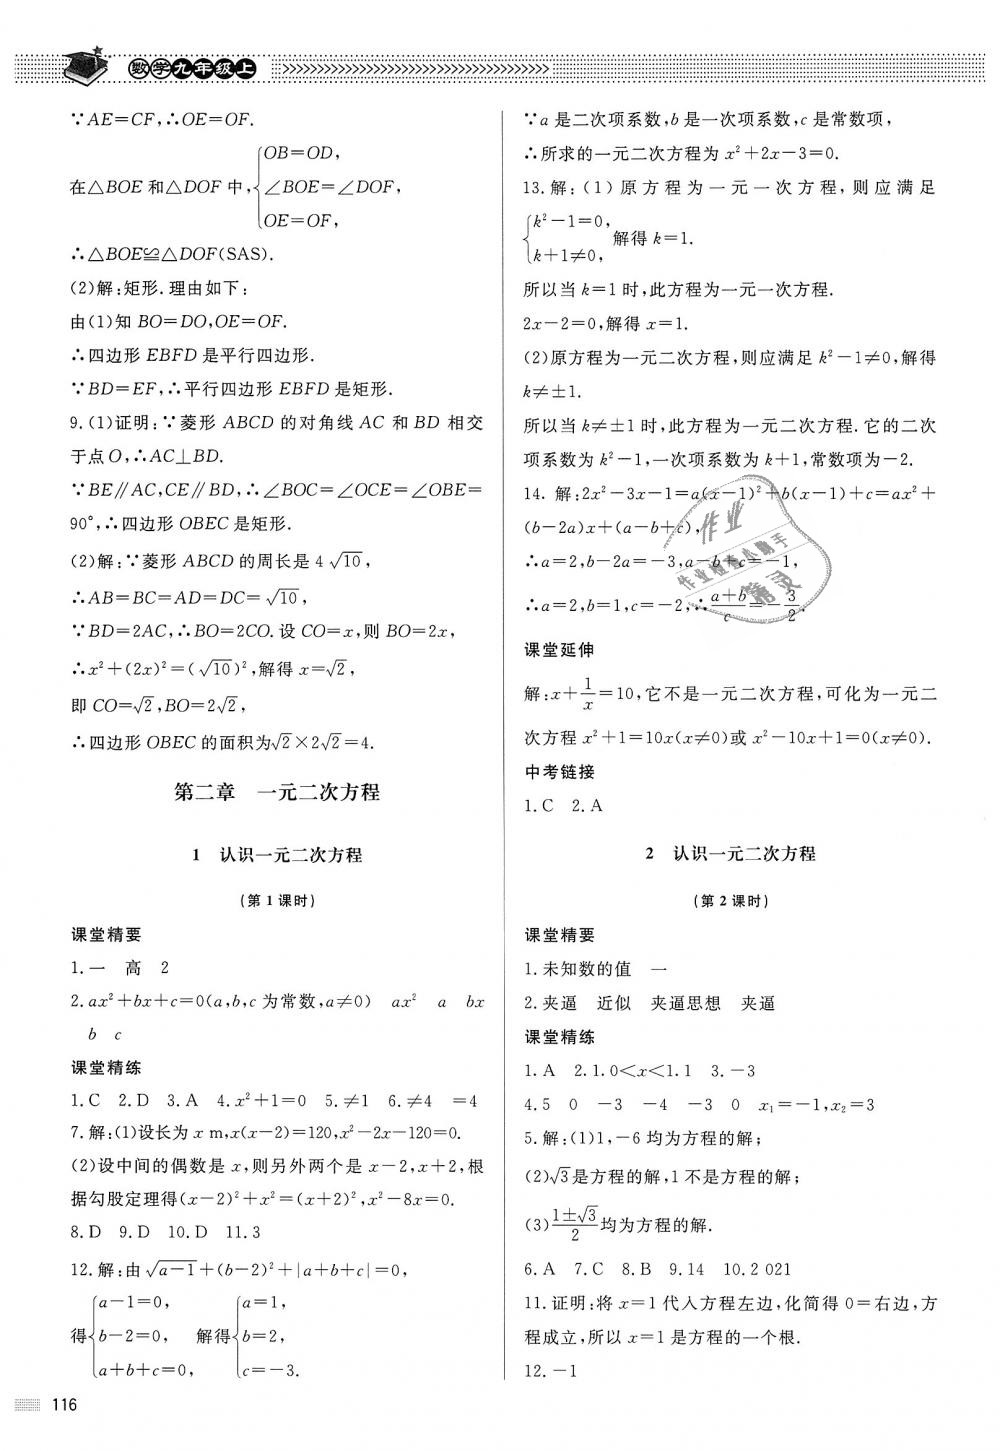 数学九年级上
∵AE=CF,∴OE=OF.
在△BOE 和△DOF 中,{OB=OD,
∠BOE=∠DOF,
OE=OF,
∴△BOE≌△DOF(SAS).
(2)解:矩形.理由如下:
由(1)知 BO=DO,OE=OF.
∴四边形 EBFD 是平行四边形.
∵BD=EF,∴平行四边形 EBFD 是矩形.
9.(1)证明:∵菱形 ABCD 的对角线 AC 和 BD 相交
于点O,∴AC⊥BD.
∵BE∥AC,CE∥BD,∴∠BOC=∠OCE=∠OBE=
90°,∴四边形 OBEC 是矩形.
(2)解:∵菱形 ABCD 的周长是 4√10,
∴AB=BC=AD=DC=√10,
∵BD=2AC,∴BO=2CO.设 CO=x,则 BO=2x,
∴x²+(2x)²=(√10)²,解得 x=√2,
即 CO=√2,BO=2√2,
∴四边形 OBEC 的面积为√2×2√2=4.
第二章 一元二次方程
1 认识一元二次方程
(第 1 课时)
课堂精要
1.一 高 2
2.ax²+bx+c=0(a,b,c 为常数,a≠0) ax² a bx
b c
课堂精练
1.C 2.D 3.A 4.x²+1=0 5.≠1 6.≠4 =4
7.解:(1)设长为 x m,x(x-2)=120,x²-2x-120=0.
(2)设中间的偶数是 x,则另外两个是 x-2,x+2,根
据勾股定理得(x-2)²+x²=(x+2)²,x²-8x=0.
8.D 9.D 10.D 11.3
12.解:由√a-1+(b-2)²+|a+b+c|=0,
得{a-1=0, 解得{a=1,
b-2=0, b=2,
a+b+c=0, c=-3.
∵a 是二次项系数,b 是一次项系数,c 是常数项,
∴所求的一元二次方程为 x²+2x-3=0.
13.解:(1)原方程为一元一次方程,则应满足
{k²-1=0,
k+1≠0, 解得 k=1.
所以当 k=1 时,此方程为一元一次方程.
2x-2=0,解得 x=1.
(2)原方程为一元二次方程,则应满足 k²-1≠0,解得
k≠±1.
所以当 k≠±1 时,此方程为一元二次方程.它的二次
项系数为 k²-1,一次项系数为 k+1,常数项为-2.
14. 解:2x²-3x-1=a(x-1)²+b(x-1)+c=ax²+
(b-2a)x+(a-b+c),
∴a=2,b-2a=-3,a-b+c=-1,
∴a=2,b=1,c=-2,∴(a+b)/c=-3/2.
作业
作业检查小助手
精灵
课堂延伸
解:x+1/x=10,它不是一元二次方程,可化为一元二
次方程 x²+1=10x(x≠0)或 x²-10x+1=0(x≠0).
中考链接
1.C 2.A
2 认识一元二次方程
(第 2 课时)
课堂精要
1.未知数的值 一
2.夹逼 近似 夹逼思想 夹逼
课堂精练
1.A 2.1.0<x<1.1 3.-3
4.5 0 -3 -4 -3 0 x₁=-1,x₂=3
5.解:(1)1,-6 均为方程的解;
(2)√3是方程的解,1 不是方程的解;
(3)(1±√3)/2 均为方程的解.
6.A 7.C 8.B 9.14 10.2 021
11.证明:将 x=1 代入方程左边,化简得 0=右边,方
程成立,所以 x=1 是方程的一个根.
12.-1
116